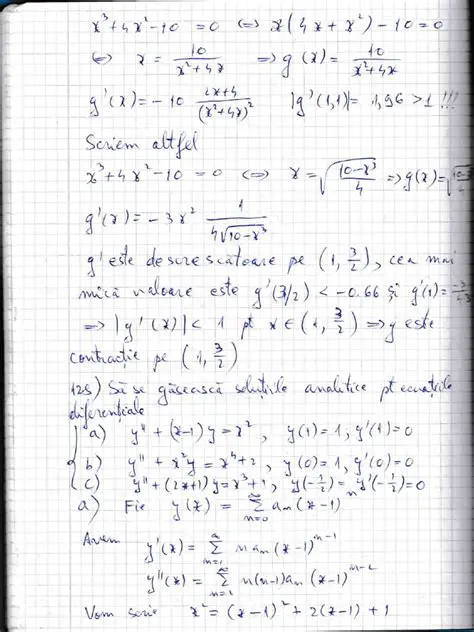 x³+4x²-10 = 0 ⇔ x(4x+x²)-10=0
⇔ x = 10/(x²+4x) ⇒ g(x) = 10/(x²+4x)
g'(x) = -10 (2x+4)/(x²+4x)² |g'(1,1)| = 1,96 > 1 !!!
Scriem altfel
x³+4x²-10 = 0 ⇔ x = √((10-x³)/4) ⇒ g(x)=√(10-x³
g'(x) = -3x² 1/(4√(10-x³))
g' este descrescătoare pe (1, 3/2), cea mai
mică valoare este g'(3/2) < -0.66 și g'(1)=
⇒ |g'(x)| < 1 pt x∈(1, 3/2) ⇒ g este
contracție pe (1, 3/2)
12S) Să se găsească soluțiile analitice pt ecuațiile
diferențiale
a) y''+(x-1)y = x², y(1)=1, y'(1)=0
b) y''+x²y = x⁴+2, y(0)=1, y'(0)=0
c) y''+(2x+1)y = x³+1, y(-1/2)=y'(-1/2)=0
a) Fie y(x) = ∑_{n=0}^∞ aₙ(x-1)ⁿ
Avem y'(x) = ∑_{n=1}^∞ n aₙ (x-1)^{n-1}
y''(x) = ∑_{n=2}^∞ n(n-1)aₙ (x-1)^{n-2}
Vom scrie x² = (x-1)²+2(x-1)+1